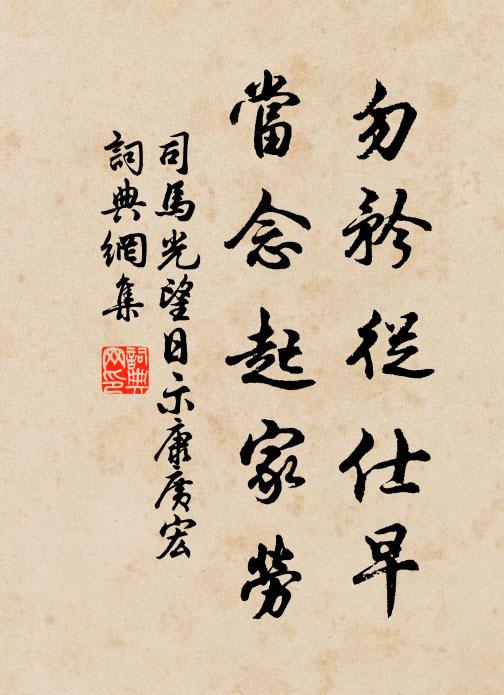 勿矜從仕早
當念起家勞
司馬光望日示康廣宏
詞典網集
詞典
网印